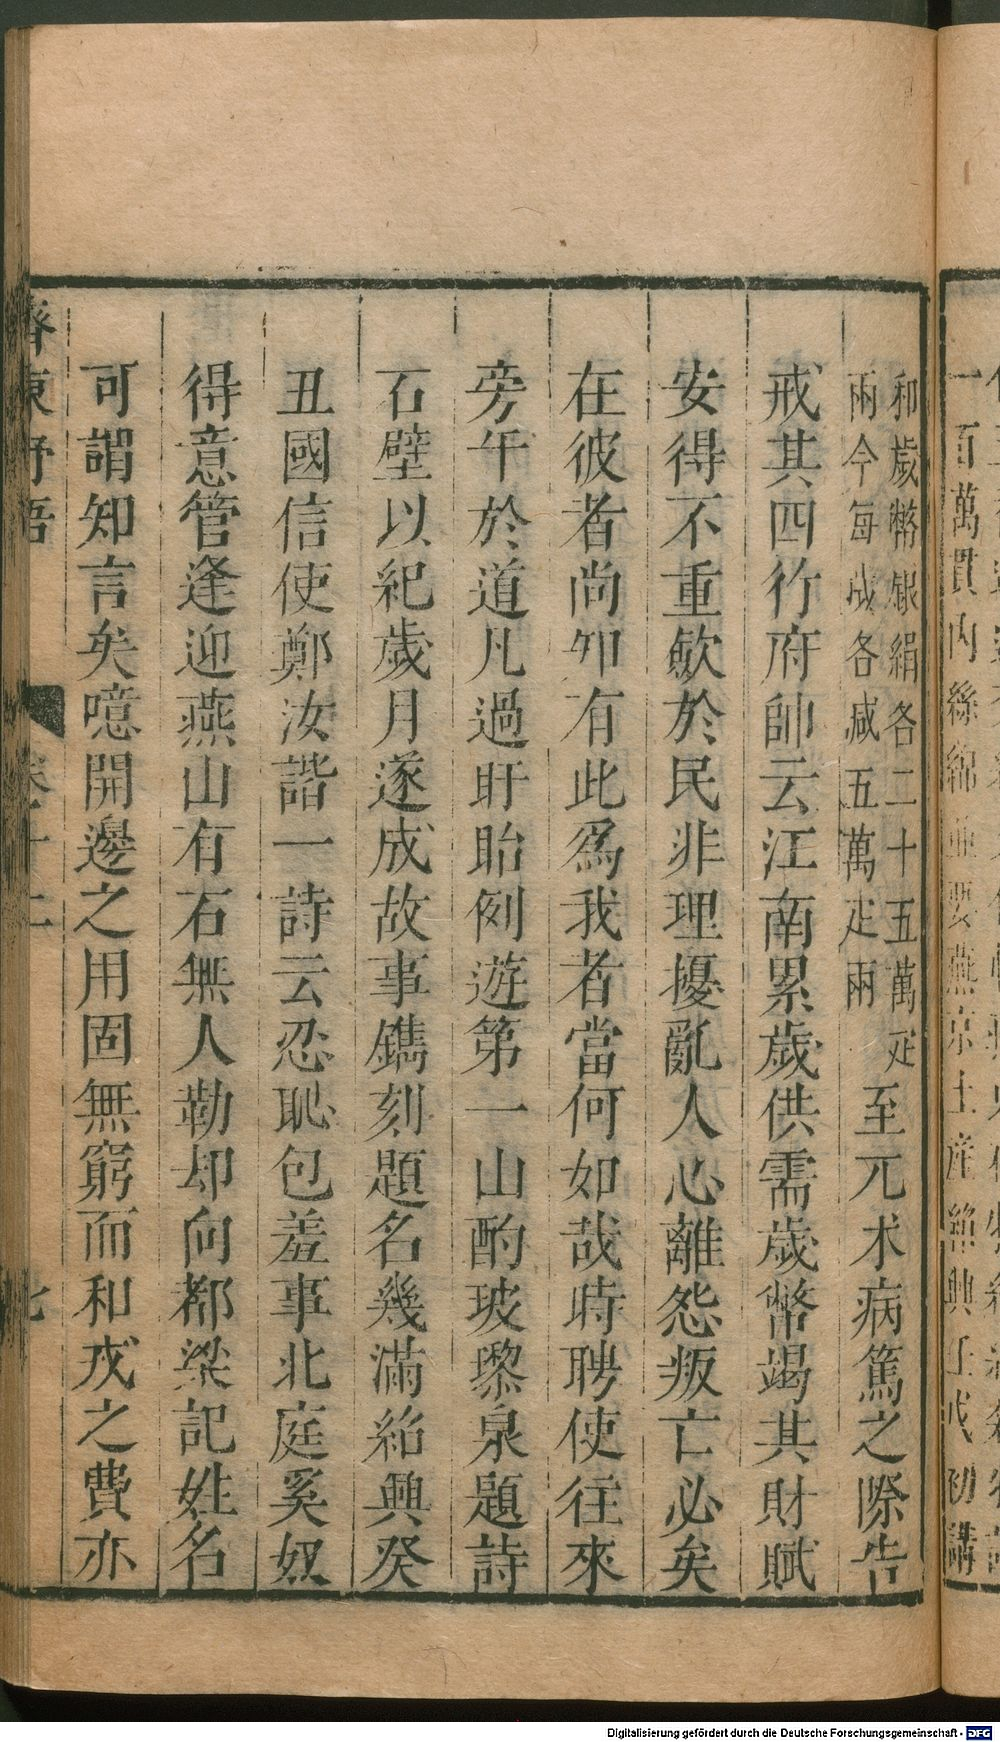 一百萬貫內絲綿並要燕京土產紹興壬戌初講
和歲幣銀絹各二十五萬疋
兩今每歲各减五萬疋兩
至元术病篤之際告
戒其四行府帥云江南累歲供需歲幣竭其財賦
安得不重斂於民非理擾亂人心離怨叛亡必矣
在彼者尚知有此爲我者當何如哉時聘使往來
旁午於道凡過盱眙例遊第一山酌玻瓈泉題詩
石壁以紀歲月遂成故事鐫刻題名幾滿紹興癸
丑國信使鄭汝諧一詩云忍恥包羞事北庭奚奴
得意管逢迎燕山有石無人勒却向都梁記姓名
可謂知言矣噫開邊之用固無窮而和戎之費亦
齊東野語
卷十二
七
Digitalisierung gefördert durch die Deutsche Forschungsgemeinschaft - DFG